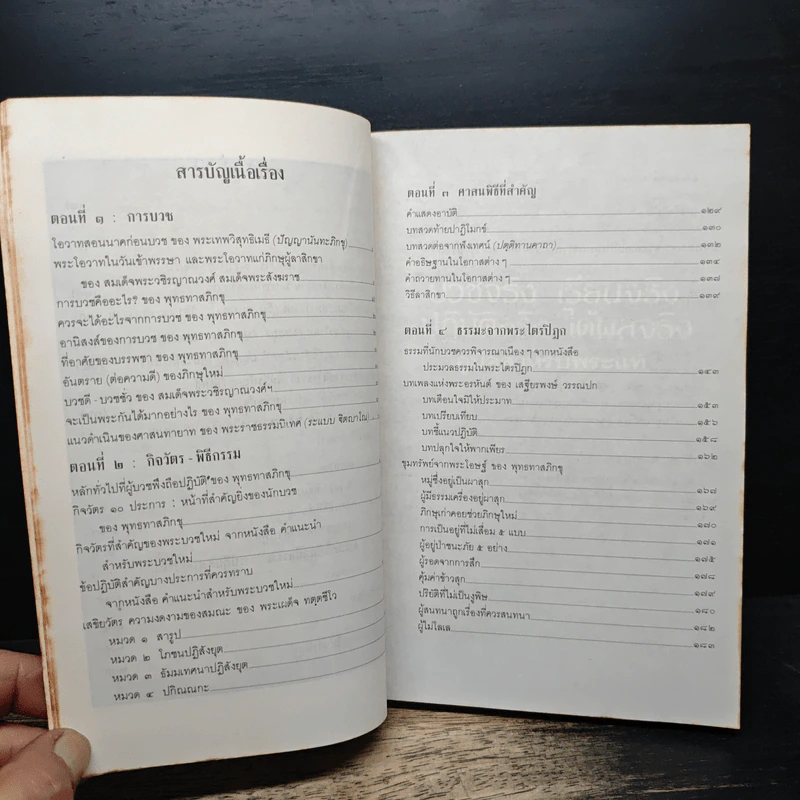 สารบัญเนื้อเรื่อง
ตอนที่ ๑ : การบวช
โอวาทสอนนาคก่อนบวช ของ พระเทพวิสุทธิเมธี (ปัญญานันทะภิกขุ)
พระโอวาทในวันเข้าพรรษา และพระโอวาทแก่ภิกษุผู้ลาสิกขา
ของ สมเด็จพระวชิรญาณวงศ์ สมเด็จพระสังฆราช
การบวชคืออะไร? ของ พุทธทาสภิกขุ
ควรจะได้อะไรจากการบวช ของ พุทธทาสภิกขุ
อานิสงส์ของการบวช ของ พุทธทาสภิกขุ
ที่อาศัยของบรรพชา ของ พุทธทาสภิกขุ
อันตราย (ต่อความดี) ของภิกษุใหม่
บวชดี - บวชชั่ว ของ สมเด็จพระวชิรญาณวงศ์ฯ
จะเป็นพระกันได้มากอย่างไร ของ พุทธทาสภิกขุ
แนวดำเนินของศาสนทายาท ของ พระราชธรรมนิเทศ (ระแบบ ฐิตญาโณ)
ตอนที่ ๒ : กิจวัตร - พิธีกรรม
หลักทั่วไปที่ผู้บวชพึงถือปฏิบัติ ของ พุทธทาสภิกขุ
กิจวัตร ๑๐ ประการ : หน้าที่สำคัญยิ่งของนักบวช
ของ พุทธทาสภิกขุ
กิจวัตรที่สำคัญของพระบวชใหม่ จากหนังสือ คำแนะนำ
สำหรับพระบวชใหม่
ข้อปฏิบัติสำคัญบางประการที่ควรทราบ
จากหนังสือ คำแนะนำสำหรับพระบวชใหม่
เสขิยวัตร ความงดงามของสมณะ ของ พระเผด็จ ทตฺตชีโว
หมวด ๑ สารูป
หมวด ๒ โภชนปฏิสังยุต
หมวด ๓ ธัมมเทศนาปฏิสังยุต
หมวด ๔ ปกิณณกะ
ตอนที่ ๓ ศาสนพิธีที่สำคัญ
คำแสดงอาบัติ ๑๒๙
บทสวดท้ายปาฏิโมกข์ ๑๓๐
บทสวดต่อจากฟังเทศน์ (ปตฺติทานคาถา) ๑๓๒
คำอธิษฐานในโอกาสต่าง ๆ ๑๓๔
คำถวายทานในโอกาสต่าง ๆ ๑๓๗
วิธีลาสิกขา ๑๓๙
ตอนที่ ๔ ธรรมะจากพระไตรปิฎก
ธรรมที่นักบวชควรพิจารณาเนือง ๆ จากหนังสือ
ประมวลธรรมในพระไตรปิฎก ๑๔๓
บทเพลงแห่งพระอรหันต์ ของ เสฐียรพงษ์ วรรณปก
บทเตือนใจมิให้ประมาท ๑๕๓
บทเปรียบเทียบ ๑๕๖
บทชี้แนวปฏิบัติ ๑๕๘
บทปลุกใจให้พากเพียร ๑๖๒
ขุมทรัพย์จากพระโอษฐ์ ของ พุทธทาสภิกขุ
หมู่ซึ่งอยู่เป็นผาสุก ๑๖๗
ผู้มีธรรมเครื่องอยู่ผาสุก ๑๖๙
ภิกษุเก่าคอยช่วยภิกษุใหม่ ๑๗๐
การเป็นอยู่ที่ไม่เสื่อม ๕ แบบ ๑๗๑
ผู้อยู่ป่าชนะภัย ๕ อย่าง ๑๗๕
ผู้รอดจากการสึก ๑๗๘
คุ้มค่าข้าวสุก ๑๗๙
ปริยัติที่ไม่เป็นงูพิษ ๑๘๐
ผู้สนทนาถูกเรื่องที่ควรสนทนา ๑๘๒
ผู้ไม่โลเล ๑๘๓